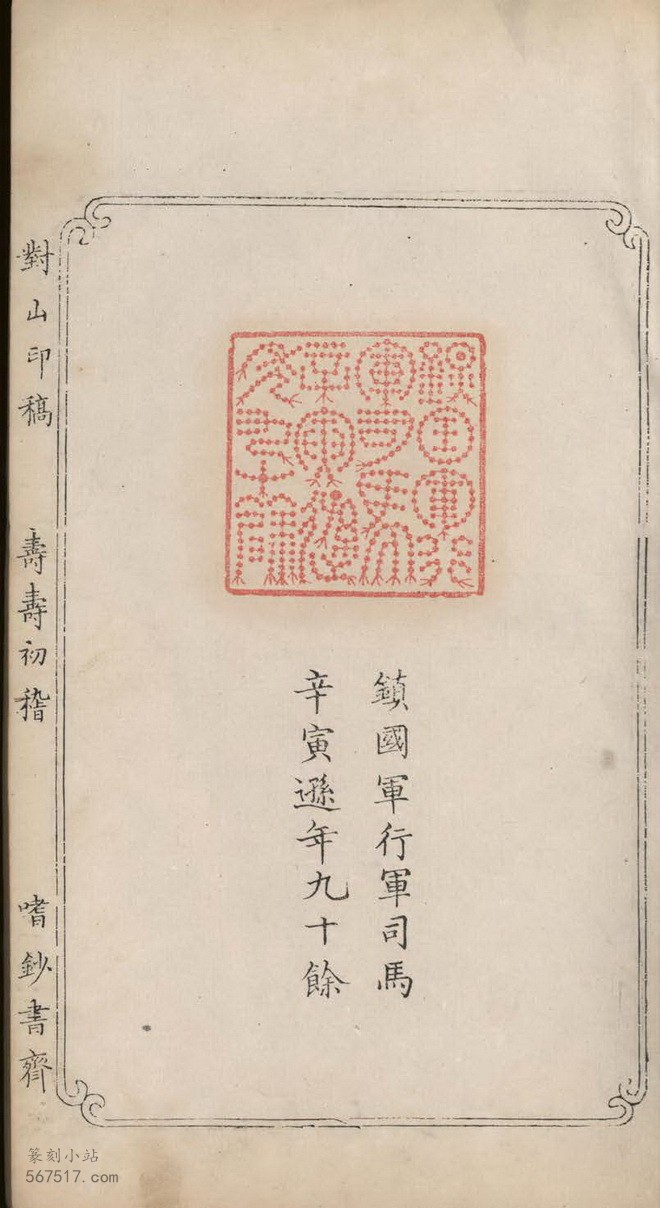 鎮國軍行軍司馬
辛寅遜年九十餘
對山印稿
壽壽初稽
嗜鈔書齊
篆刻小站
567517.com